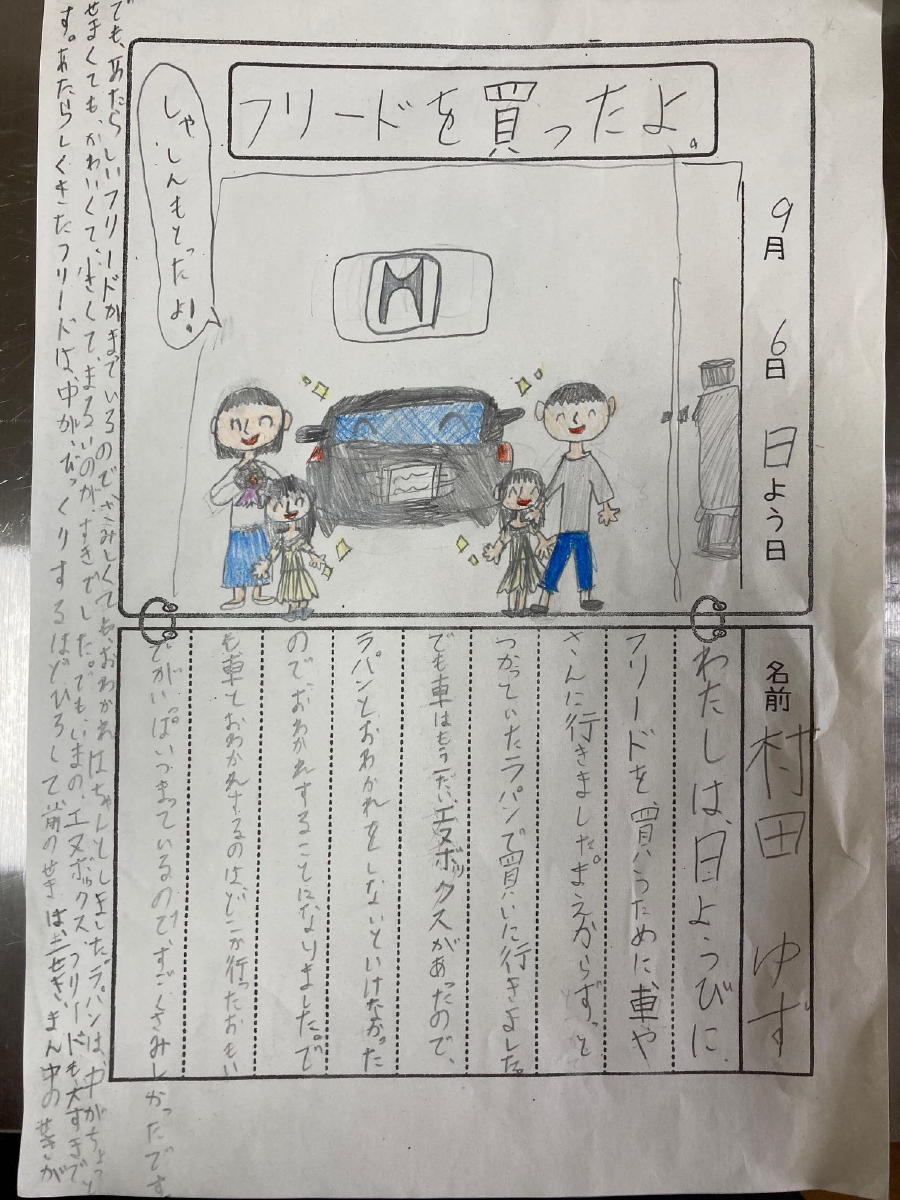 フリードを買ったよ。
しゃしんもとったよ!
9月 6日 日よう日
名前 村田 ゆず
わたしは、日ようびに、
フリードを買うために、車や
さんに行きました。まえからずっと
つかっていたラパンで買いに行きました。
でも車はもう一だい、エヌボックスがあったので、
ラパンとおわかれをしないといけなかった
ので、おわかれすることになりました。で
も車とおわかれするのは、どこか行ったおもい
でがいっぱいつまっているので、すごくさみしかったです。
でも、あたらしいフリードがまているのでさみしくても、おわかれはちゃんとしました。ラパンは、中がちょっと
せまくても、かわいくて、小さくて、まるいのが、すきでした。でもいまの、エヌボックス、フリードも大すきで
す。あたらしくきたフリードは、中が、びっくりするほどひろして前のせきは、二せき、まん中のせきが